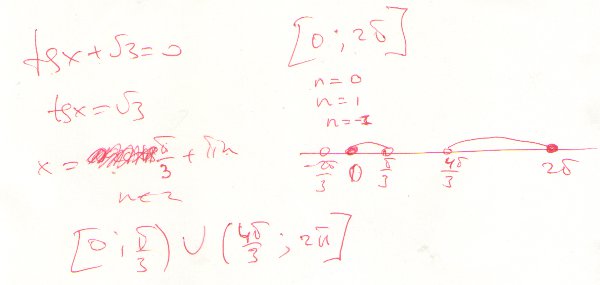 tgx + √3 = 0
tgx = √3
x = π/3 + πn
n ∈ Z
[0 ; 2π]
n = 0
n = 1
n = -1
-2π/3 0 π/3 4π/3 2π
[0 ; π/3) ∪ (4π/3 ; 2π]